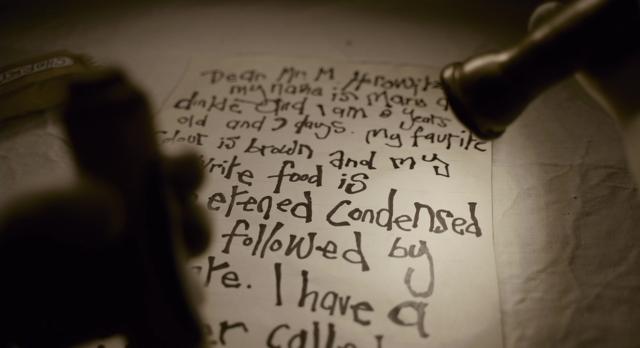 Dear Mr M Horowitz
my name is Mary d
dinkle and I am 8 years
old and 3 days. my faurite
colour is brown and my
food is
condensed
followed by
I have a
called